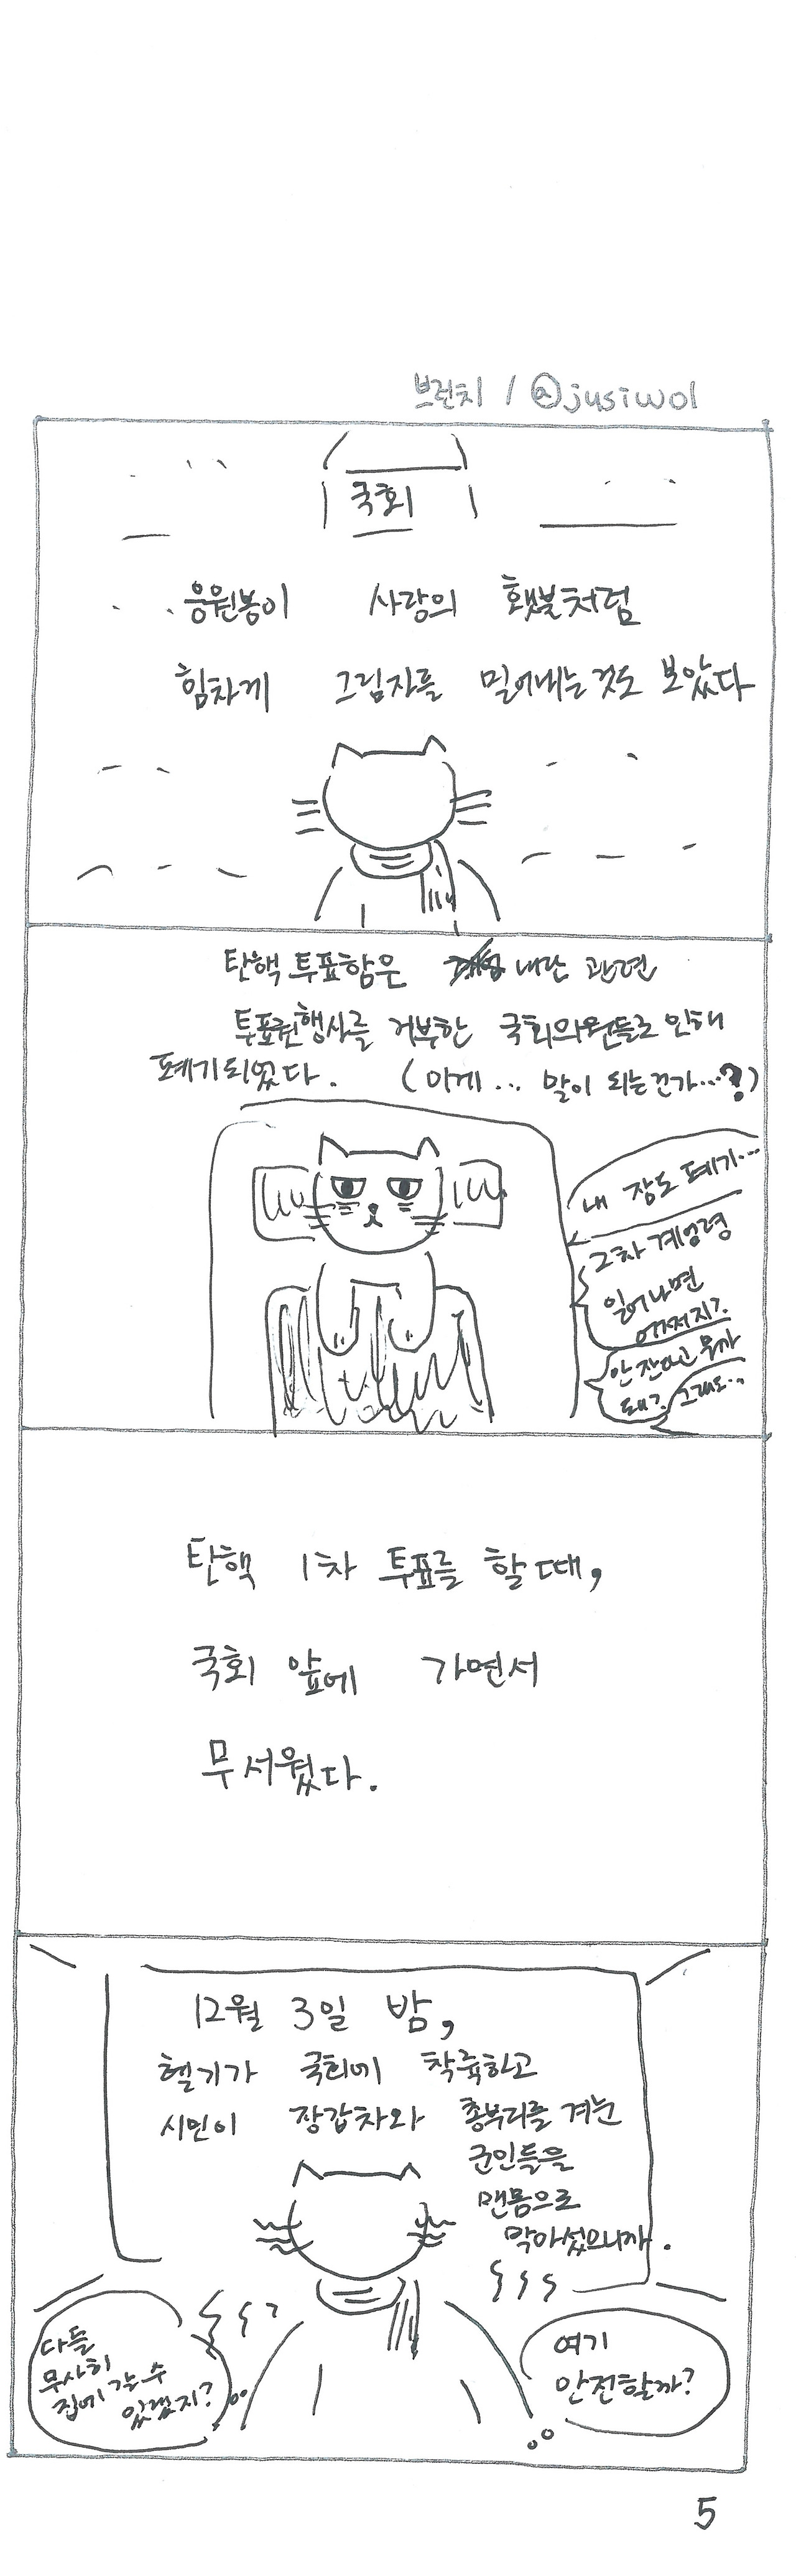 브런치 / @jusiwol
국회
응원봉이 사랑의 횃불처럼
힘차게 그림자를 밀어내는것도 보았다
탄핵 투표함은 내란 관련
투표권행사를 거부한 국회의원들로 인해
폐기되었다. (이게... 말이 되는건가...?)
내 잠도 폐기...
2차 계엄령
일어나면
어쩌지?
안 잔다고 뭐가
돼? 그래도...
탄핵 1차 투표를 할 때,
국회 앞에 가면서
무서웠다.
12월 3일 밤,
헬기가 국회에 착륙하고
시민이 장갑차와 총부리를 겨눈
군인들을
맨몸으로
막아섰으니까.
다들
무사히
집에 갈 수
있겠지?
여기
안전할까?
5